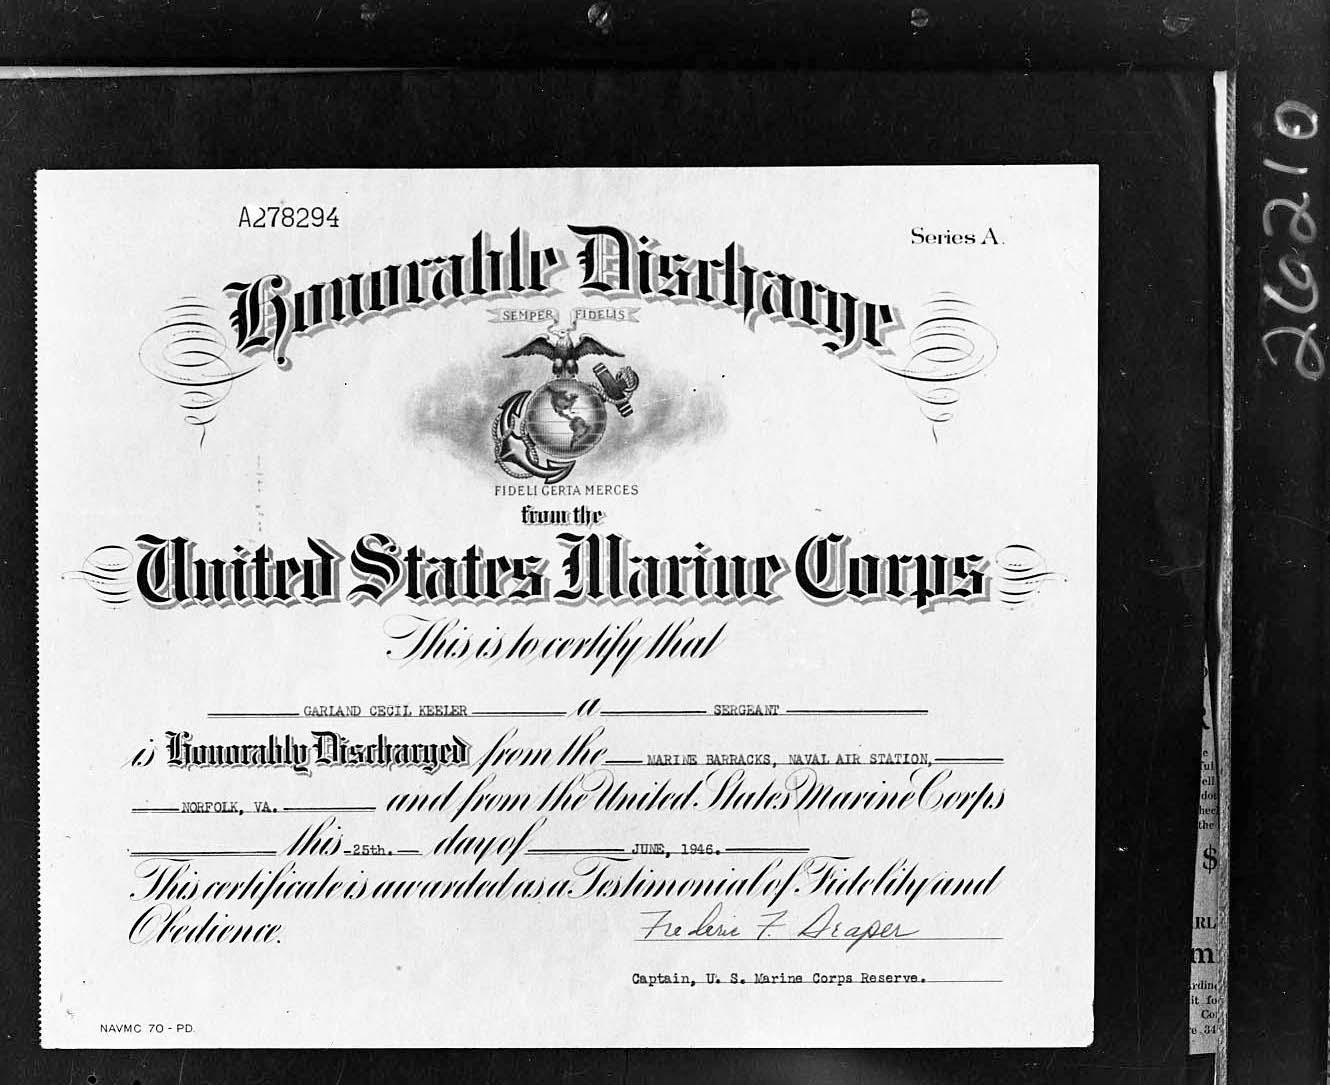 A278294
Series A.
Honorable Discharge
SEMPER FIDELIS
FIDELI CERTA MERCES
from the
United States Marine Corps
This is to certify that
GARLAND CECIL KEELER a SERGEANT
is Honorably Discharged from the MARINE BARRACKS, NAVAL AIR STATION,
NORFOLK, VA. and from the United States Marine Corps
this 25th. day of JUNE, 1946.
This certificate is awarded as a Testimonial of Fidelity and
Obedience.
Frederic F. Draper
Captain, U. S. Marine Corps Reserve.
NAVMC 70-PD.
26210
the
$